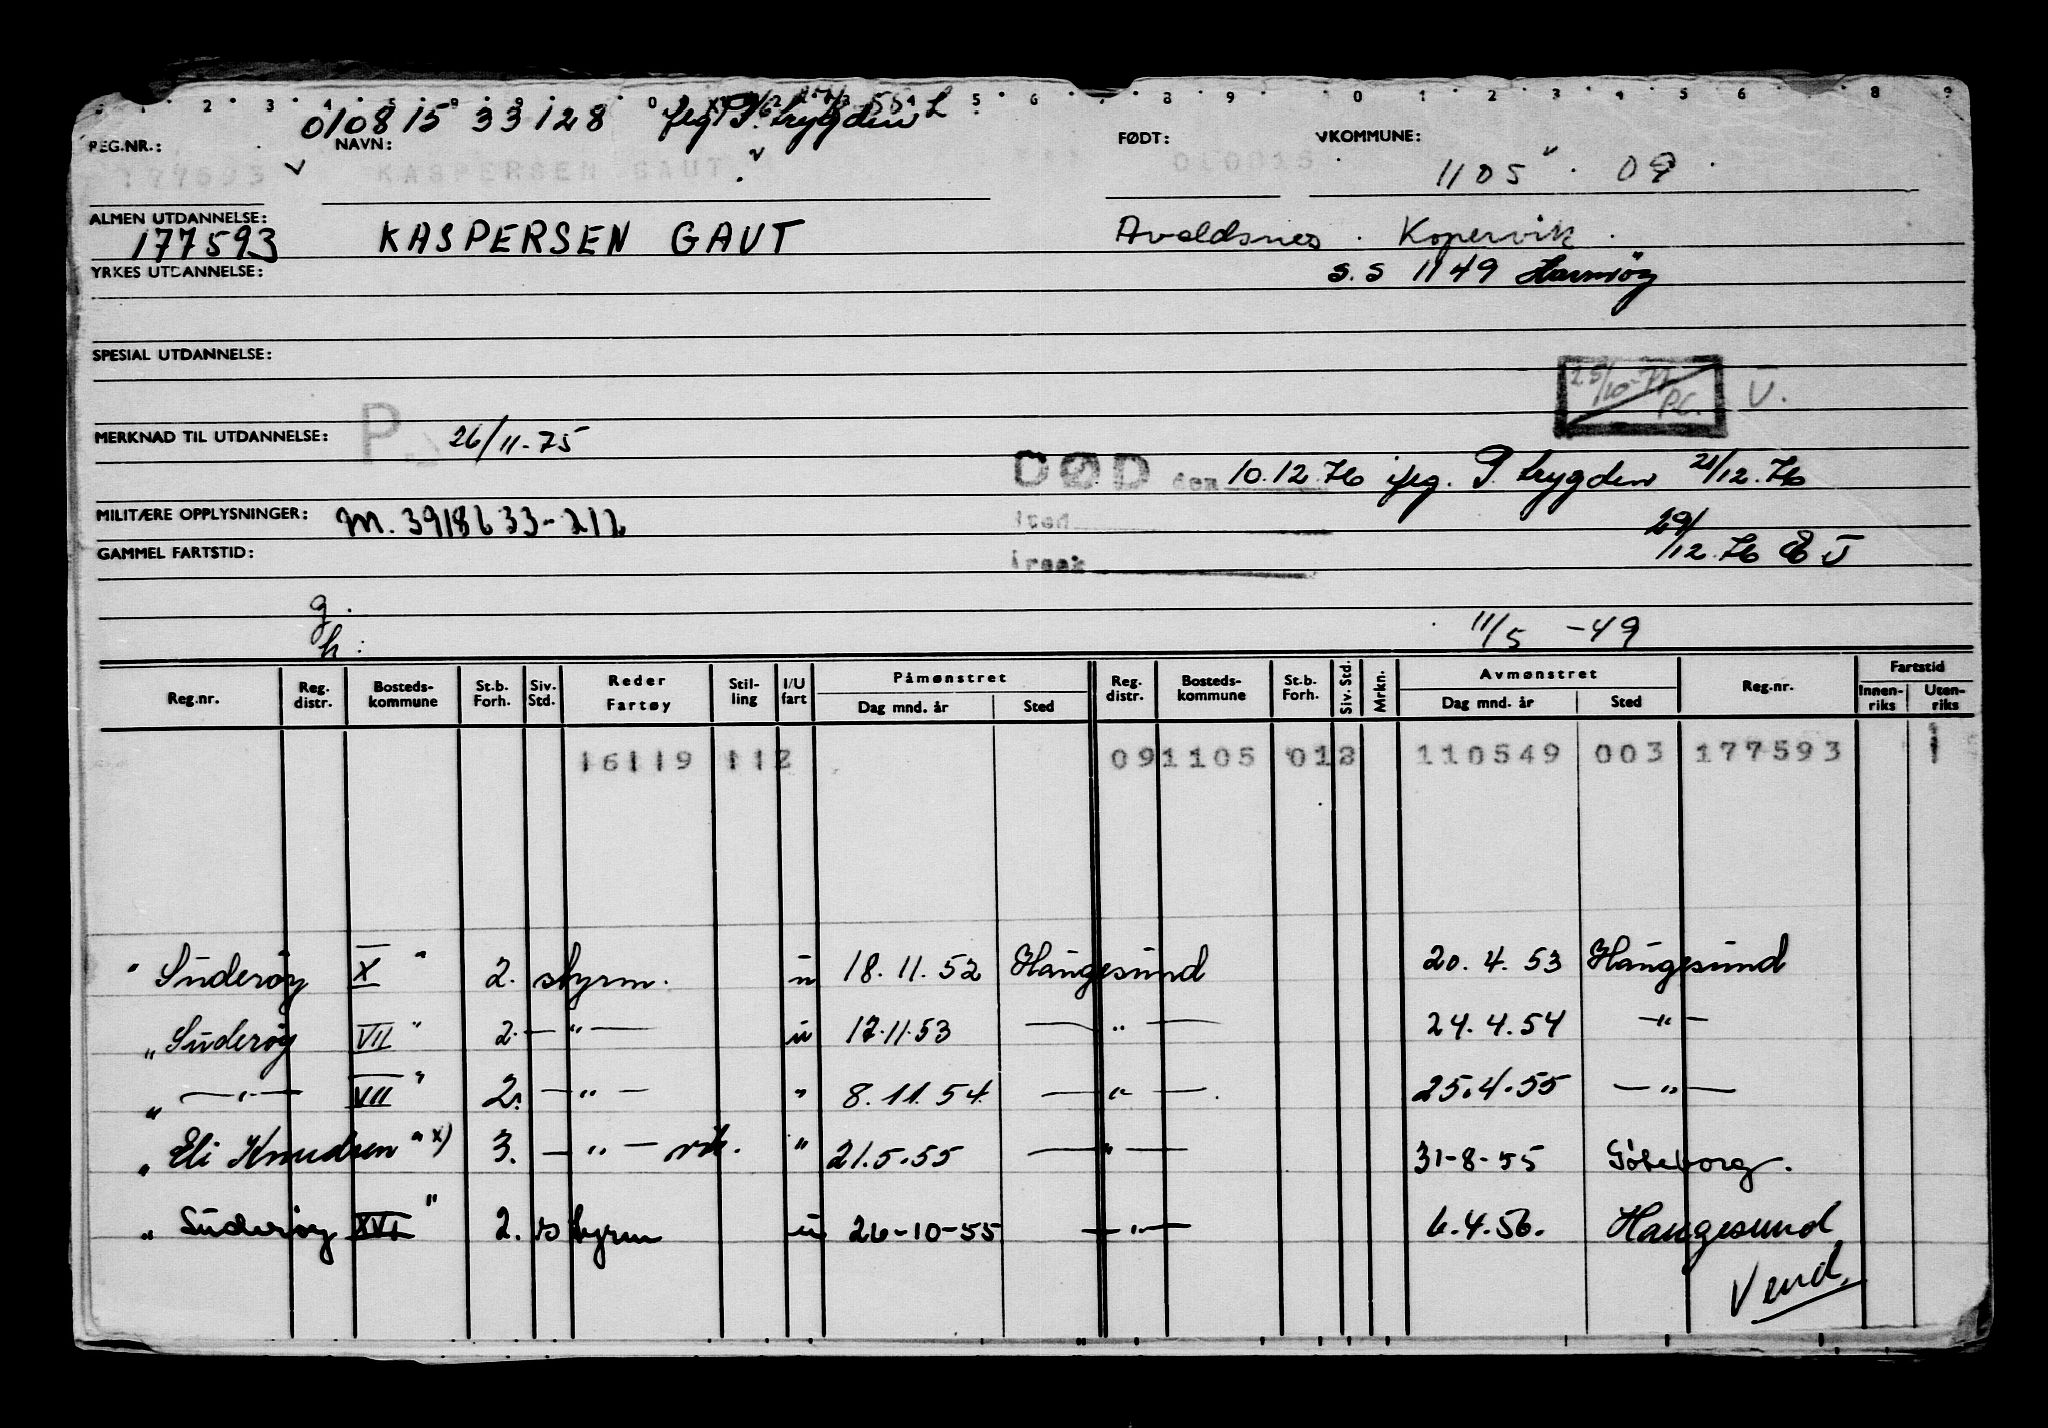 010815 33128
REG.NR.: NAVN: FØDT: KOMMUNE:
177593 KASPERSEN GAUT 010815
1105 . 09
ALMEN UTDANNELSE:
177593 KASPERSEN GAUT Avaldsnes . Kopervik .
YRKES UTDANNELSE:
S.S 1149 Karmöy
SPESIAL UTDANNELSE:
25/10-77 P.C. V.
MERKNAD TIL UTDANNELSE: P. 26/11-75
DØD den 10.12.76 iflg. P. trygden 21/12.76
MILITÆRE OPPLYSNINGER: M. 3918633-212
sted
29/12.76
GAMMEL FARTSTID:
årsak
g.
h:
11/5 -49
Reg.nr. Reg. distr. Bosteds-kommune St.b. Forh. Siv. Std. Reder Fartøy Stil-ling I/U fart Påmønstret Dag mnd. år Sted Reg. distr. Bosteds-kommune St.b. Forh. Siv. Std. Mrkn. Avmønstret Dag mnd. år Sted Reg.nr. Fartstid Innen-riks Uten-riks
16119 112 091105 012 110549 003 177593 1
" Suderøy X " 2. styrm. u 18.11.52 Haugesund 20.4.53 Haugesund
" Suderøy VII " 2. — " — u 17.11.53 — " — 24.4.54 — " —
" — " — VII " 2. — " — " 8.11.54 — " — 25.4.55 — " —
" Eli Knudsen " x) 3. — " — vik. " 21.5.55 — " — 31-8-55 Göteborg.
" Suderøy XVI " 2. styrm u 26-10-55 — " — 6.4.56. Haugesund
Vend.